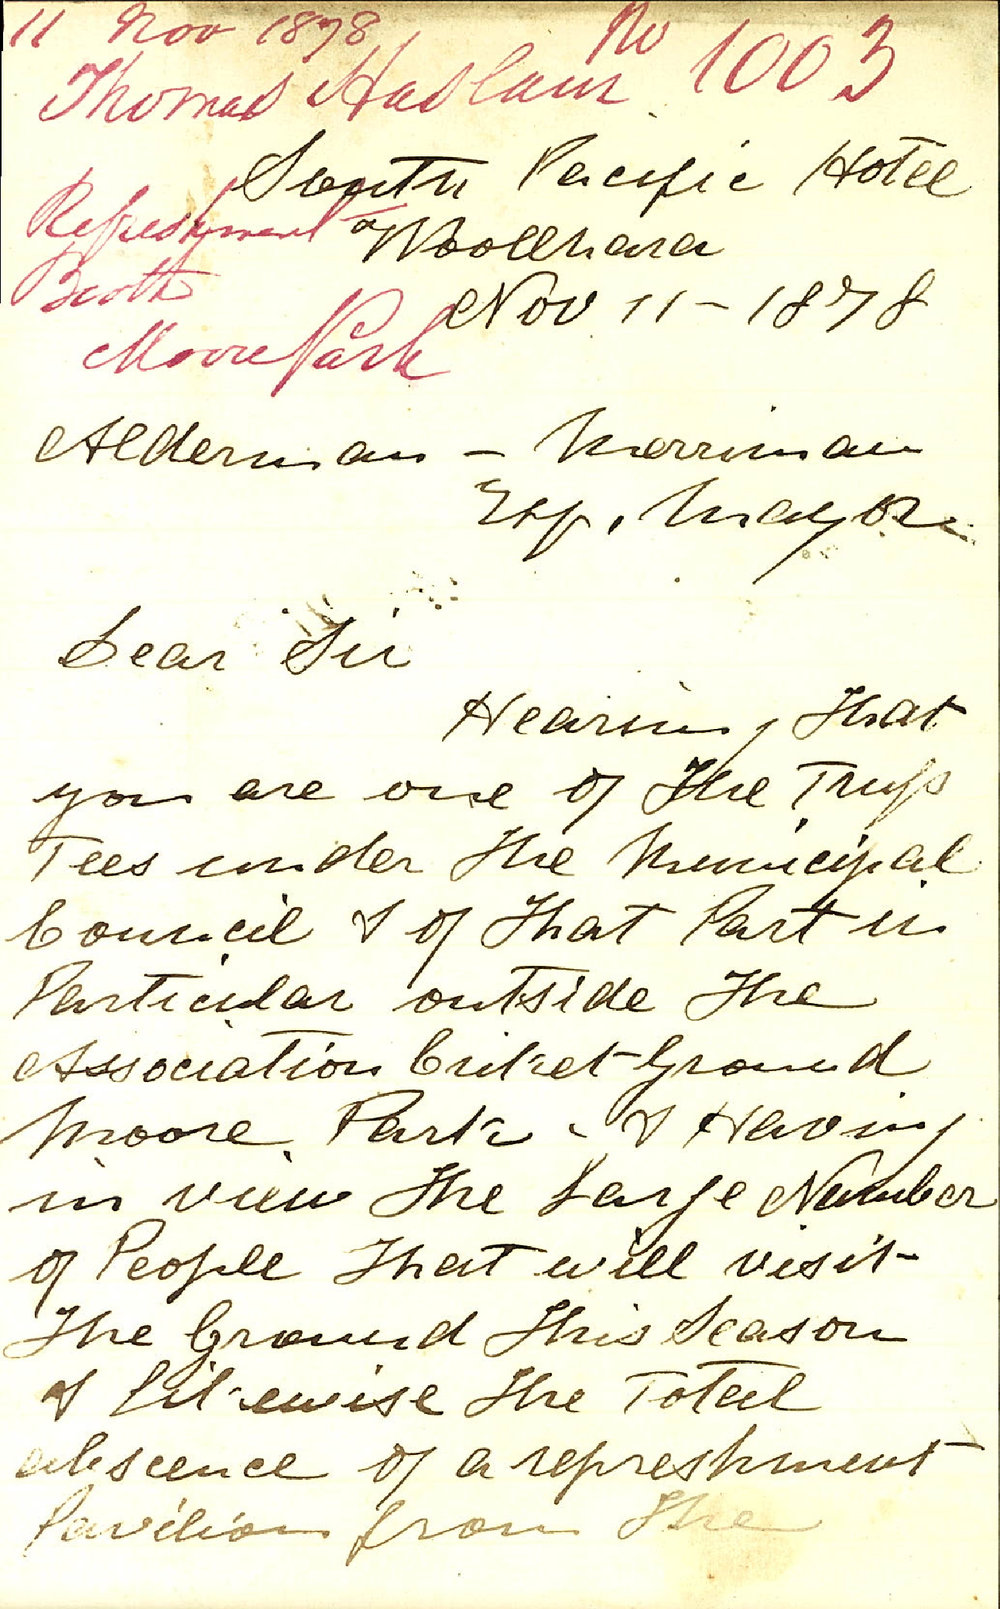 11 Nov 1878
No 1003
Thomas Haslam
South Pacific Hotel
Refreshment
Woollhara
Booth
Nov 11 - 1878
Moore Park
Alderman - Merriman
Esq. Mayor
Dear Sir
Hearing That
you are one of The Truss
Tees under The Municipal
Council & of That Part in
Particular outside The
Association Criket Ground
Moore Park - & Having
in view The Large Number
of People That will visit
The Ground This Season
& likewise The Total
abscence of a refreshment
Pavilion from The